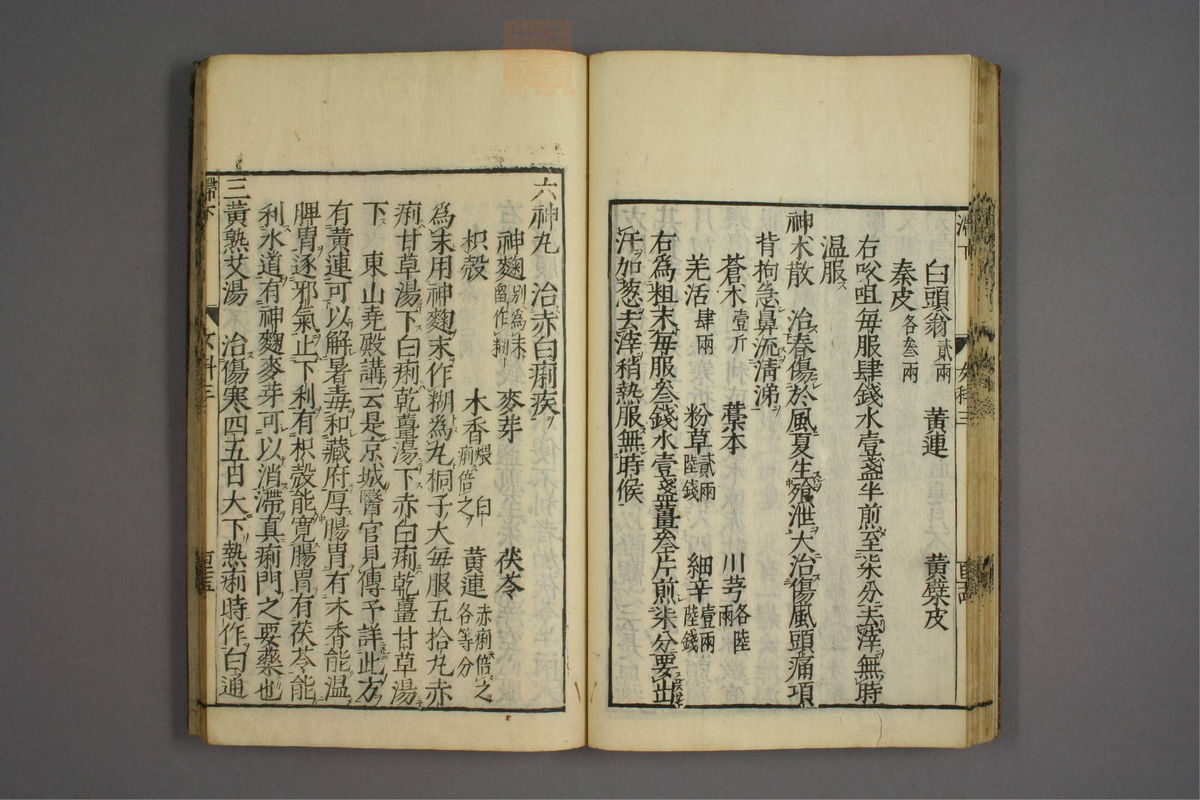 白頭翁貳兩　黃連　黃蘗皮
秦皮各叁兩
右㕮咀每服肆錢水壹盞半煎至柒分去滓無時
温服
神朮散　治春傷於風夏生飱泄大治傷風頭痛項
背拘急鼻流清涕
蒼朮壹斤　藁本　川芎各陸兩
羌活肆兩　粉草貳兩陸錢　細辛壹兩陸錢
右為粗末每服叁錢水壹盞薑叁片煎柒分要出
汗加葱去滓稍熱服無時候
六神丸　治赤白痢疾
神麴別為末留作糊　麥芽　茯苓
枳殻　木香煨白痢倍之　黃連赤痢倍之各等分
為末用神麴末作糊為丸桐子大每服五拾丸赤
痢甘草湯下白痢乾薑湯下赤白痢乾薑甘草湯
下　東山堯殿講云是京城醫官見傳予詳此方
有黃連可以解暑毒和藏府厚腸胃有木香能温
脾胃逐邪氣止下利有枳殻能寛腸胃有茯苓能
利水道有神麴麥芽可以消滯真痢門之要藥也
三黃熟艾湯　治傷寒四五日大下熱痢時作白通
滯下
女科三